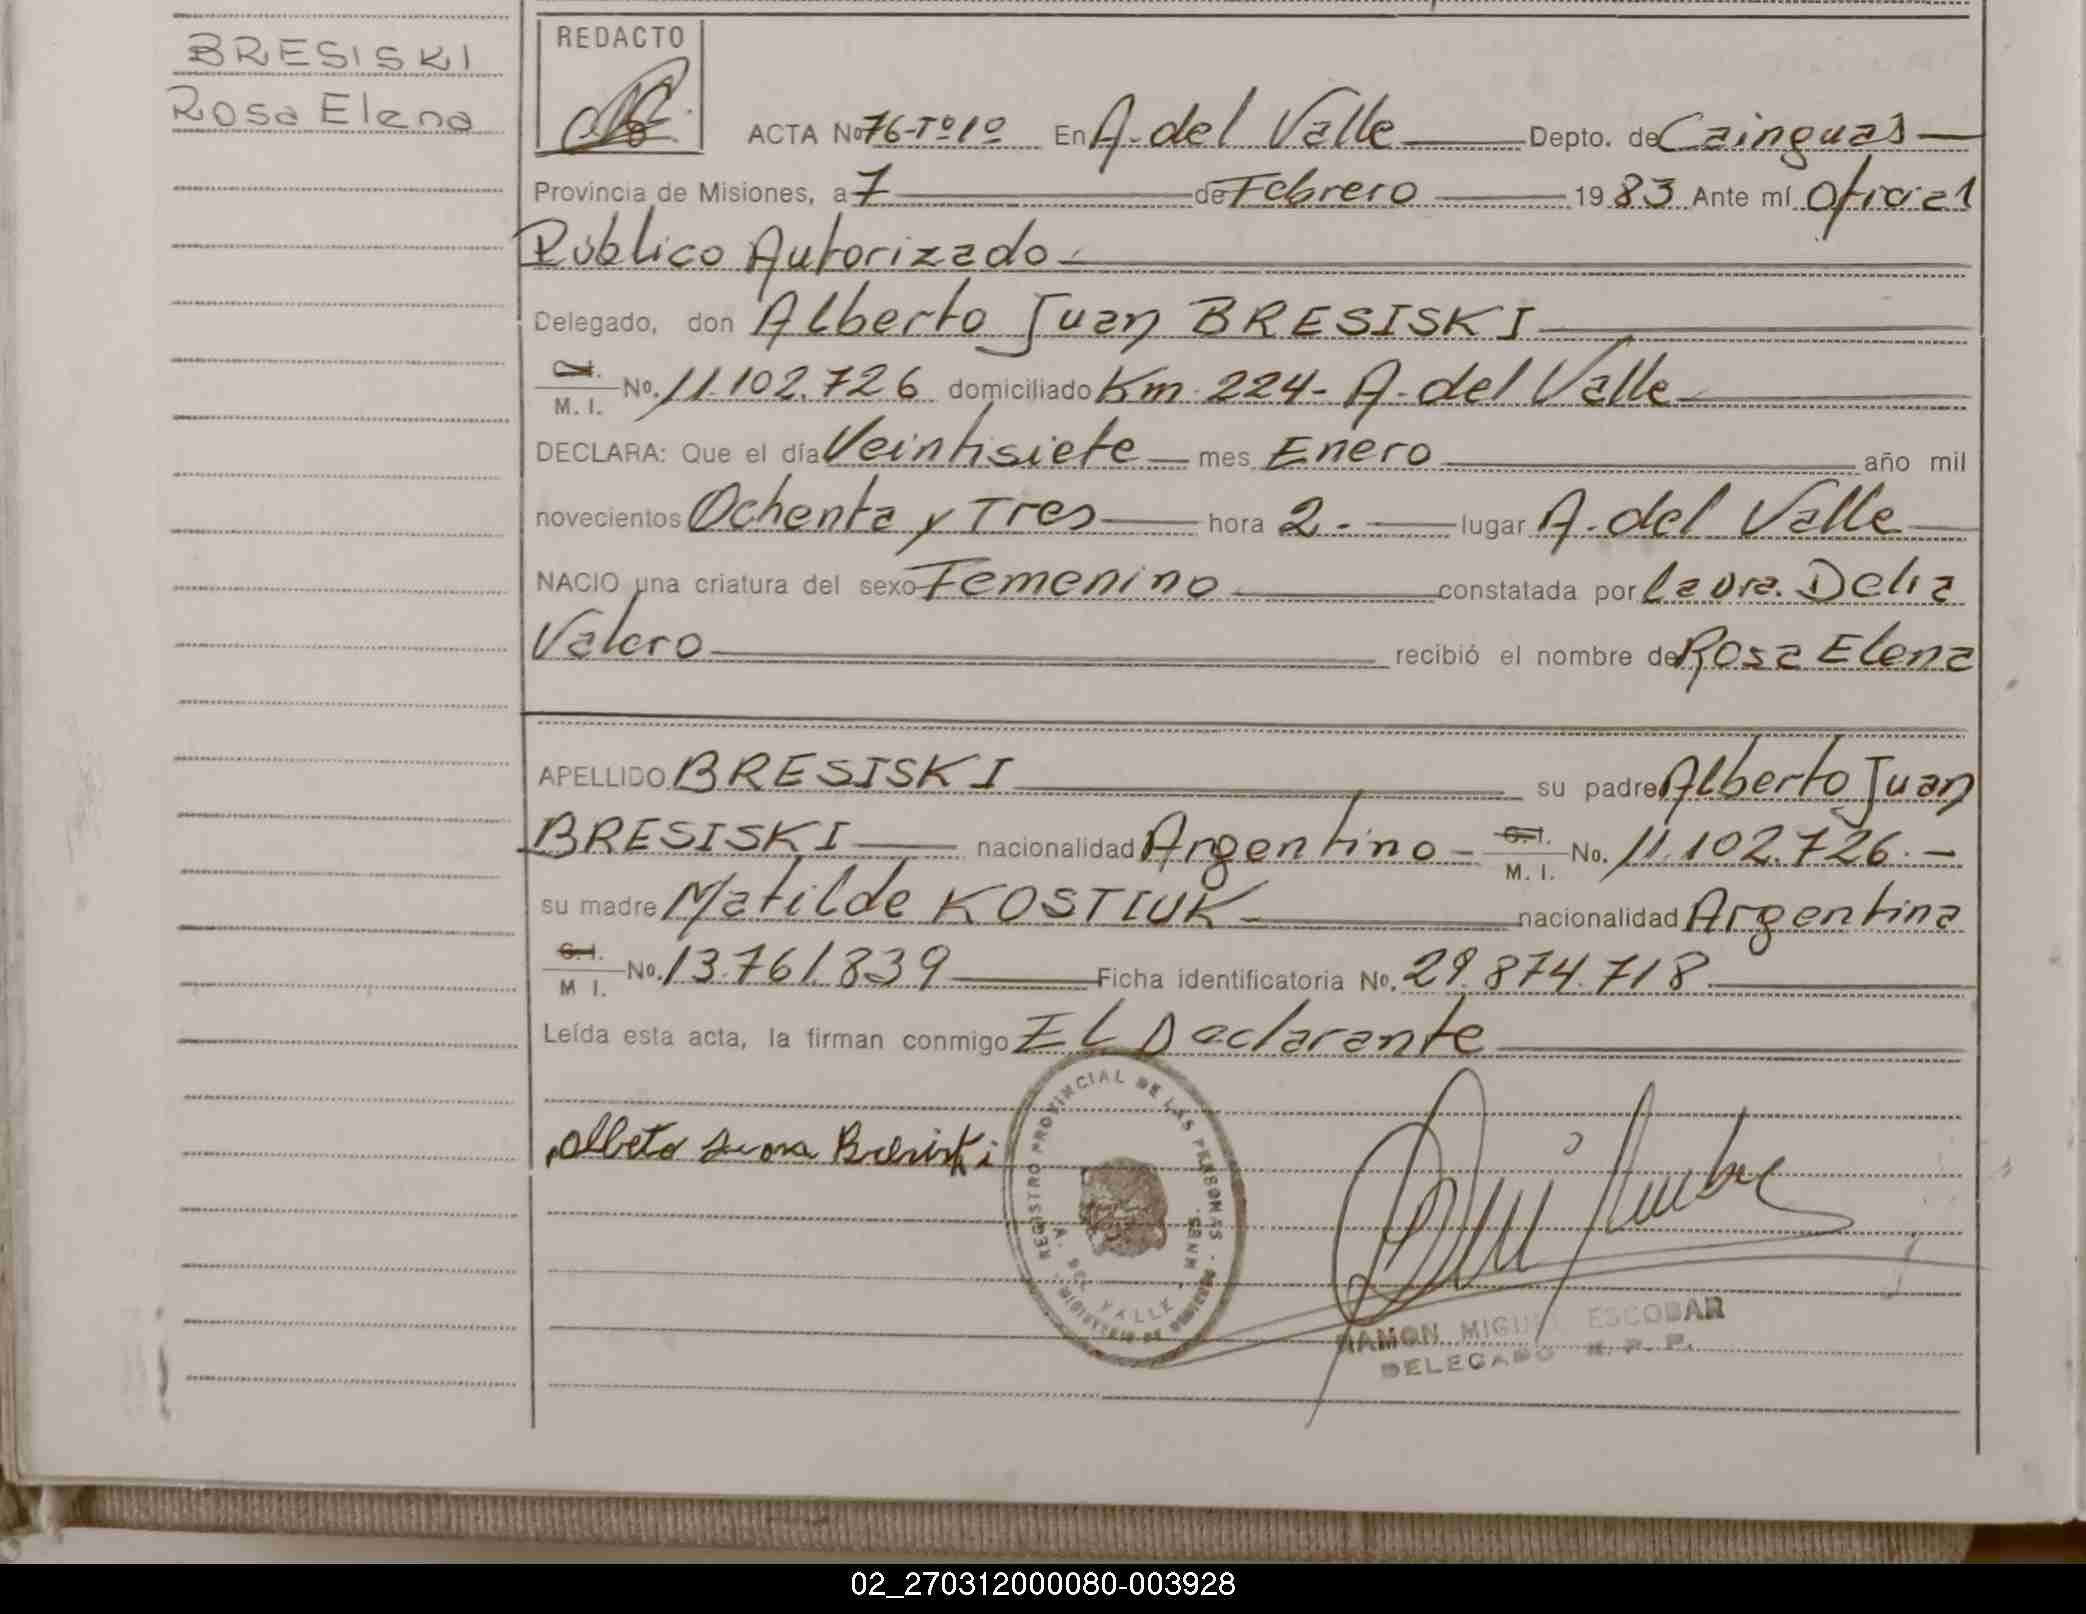 BRESISKI
Rosa Elena
REDACTO
ACTA No 76-Tº1º En A. del Valle Depto. de Cainguas
Provincia de Misiones, a 7 de Febrero 1983 Ante mí Oficial
Publico Autorizado
Delegado, don Alberto Juan BRESISKI
C.I. M. I. No. 11.102.726 domiciliado Km. 224- A. del Valle
DECLARA: Que el día Veintisiete mes Enero año mil
novecientos Ochenta y Tres hora 2.- lugar A. del Valle
NACIO una criatura del sexo Femenino constatada por Laura. Delia
Valero recibió el nombre de Rosa Elena
APELLIDO BRESISKI su padre Alberto Juan
BRESISKI nacionalidad Argentino - C.I. M. I. No. 11.102.726.-
su madre Matilde KOSTIUK nacionalidad Argentina
C.I. M I. No. 13.761.839 Ficha identificatoria No. 29.874.718
Leída esta acta, la firman conmigo El Declarante
REGISTRO PROVINCIAL DE LAS PERSONAS
A. DEL VALLE
MINISTERIO DE GOBIERNO
Alberto Juan Bresiski
RAMON MIGUEL ESCOBAR
DELEGADO R. P. P.
02_270312000080-003928